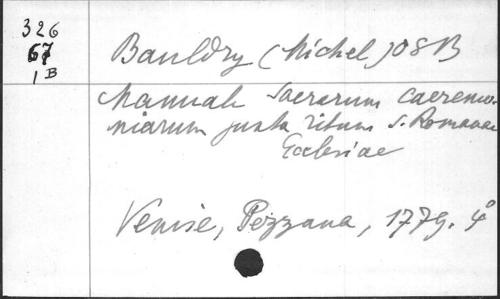 326
67
1 B
Bauldry (Michel) OSB
Manuale sacrarum caeremo-
niarum juxta ritum s. Romanae
Ecclesiae
Venise, Pezzana, 1779. 4°